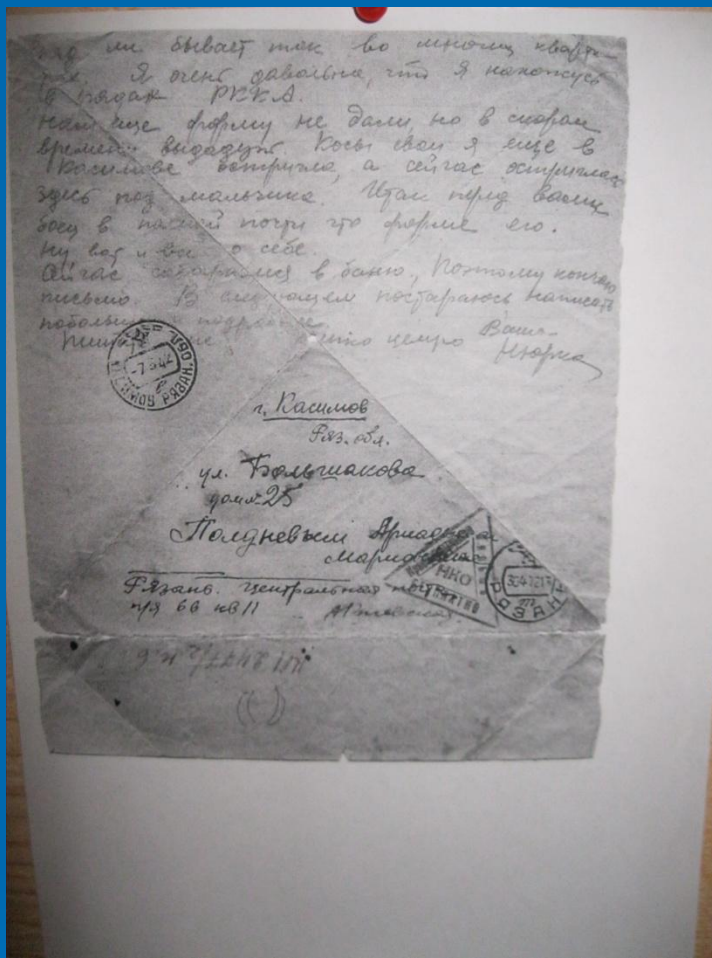 ли бывает так во многих кварти-
рах. Я очень давольна, что я нахожусь
в рядах РККА.
Нам еще форму не дали но в скором
времени выдадут. Косы свои я еще в
Касимове остригла, а сейчас остриглась
здесь под мальчика. Итак перед вами
боец в полной почти что форме его.
Ну вот и все о себе.
Сейчас собираемся в баню, Поэтому кончаю
письмо. В следующем постараюсь написать
побольше и подробнее
Пишите мне Ваша
Нюрка
КАСИМОВ РЯЗАН. ОБЛ.
г. Касимов
Ряз. обл.
ул. Большакова
дом № 25
Полдневым
НКО
БЕСПЛАТНО
РЯЗАНЬ
Рязань. Центральная
п/я 66 кв 11